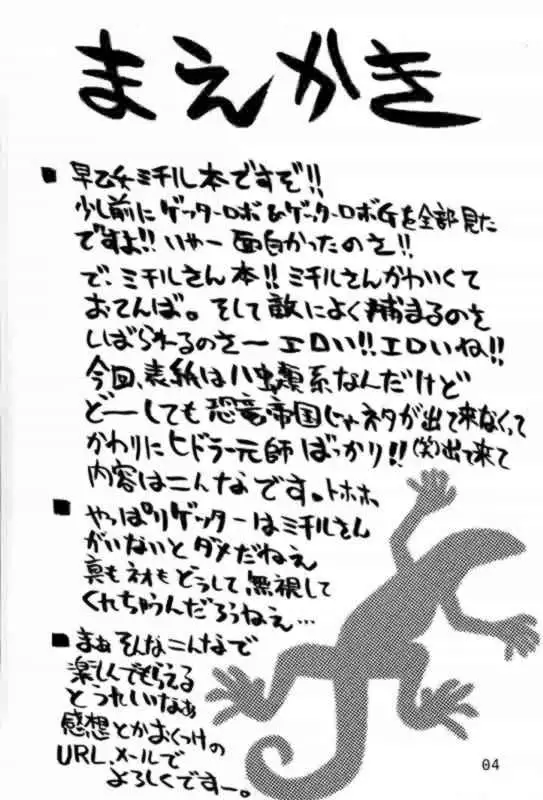 まえかき
■ 早乙女ミチル本ですぞ!!
少し前にゲッターロボ&ゲッターロボGを全部見た
ですよ!! いやー面白かったのさ!!
で、ミチルさん本!! ミチルさんかわいくて
おてんば。そして敵によく捕まるのさ
しばられるのさー エロい!! エロいね!!
今回、表紙はハ虫類系なんだけど
どーしても恐竜帝国じゃネタが出て来なくって
かわりにヒドラー元師ばっかり!! (笑)出て来て
内容はこんなです。トホホ
■ やっぱりゲッターはミチルさん
がいないとダメだねえ
真もネオもどうして無視して
くれちゃうんだろうねえ…
■ まぁそんなこんなで
楽しんでもらえる
とうれしいなぁ
感想とかおくつけの
URL、メールで
よろしくですー。
04